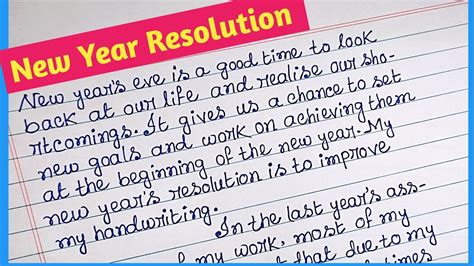 New Year Resolution
New year's eve is a good time to look
back at our life and realise our sho-
rtcomings. It gives us a chance to set
new goals and work on achieving them
at the beginning of the new year. My
new year's resolution is to improve
my handwriting.
In the last year's ass-
my work, most of my
that due to my
times